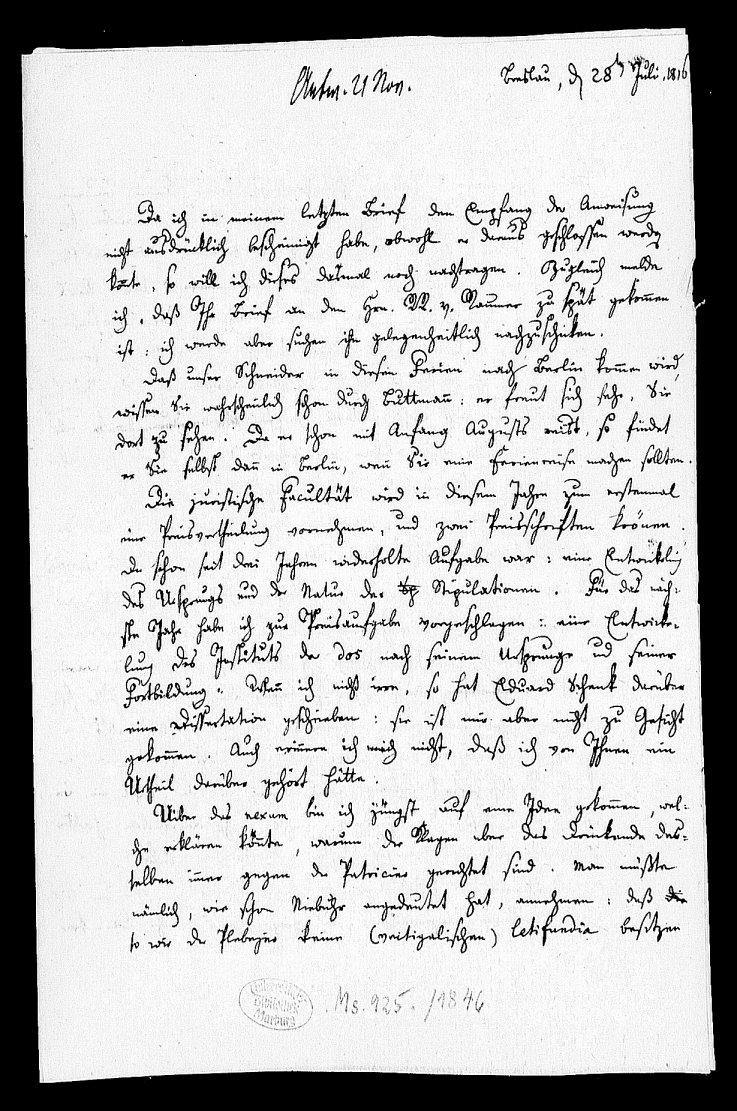 Antw. 21 Nov.
Breslau, d 28t Juli. 1816
Da ich in meinem letzten Brief den Empfang der Anweisung
nicht ausdrücklich bescheinigt habe, obwohl er daraus geschlossen werden
koñte, so will ich dieses dasmal noch nachtragen. Zugleich melde
ich, daß Ihr Brief an den Hrn. RR. v. Raumer zu spät gekommen
ist: ich werde aber suchen ihn gelegenheitlich nachzuschicken.
Daß unser Schneider in diesen Ferien nach Berlin kommen wird,
wissen Sie wahrscheinlich schon durch Buttmañ: er freut sich sehr, Sie
dort zu sehen. Da er schon mit Anfang Augusts reist, so findet
er Sie selbst dañ in Berlin, weñ Sie eine Ferienreise machen sollten.
Die juristische Facultät wird in diesem Jahre zum erstenmal
eine Preisvertheilung vornehmen, und zwei Preisschriften krönen.
Die schon seit drei Jahren wiederholte Aufgabe war: eine Entwicklung
des Ursprungs und der Natur der Stipulationen. Für das näch-
ste Jahr habe ich zur Preisaufgabe vorgeschlagen: eine Entwicke-
lung des Instituts der dos nach seinem Ursprunge und seiner
Fortbildung. Weñ ich nicht irre, so hat Eduard Schenk darüber
eine Dissertation geschrieben: sie ist mir aber nicht zu Gesicht
gekommen. Auch erinnere ich mich nicht, daß ich von Ihnen ein
Urtheil darüber gehört hätte.
Uiber das nexum bin ich jüngst auf eine Idee gekommen, wel-
che erklären köñte, warum die Klagen über das Drückende des-
selben immer gegen die Patricier gerichtet sind. Man müßte
nämlich, wie schon Niebuhr angedeutet hat, annehmen: daß
so wie die Plebejer keine (vectigalischen) latifundia besitzen
Universitäts
Bibliothek
Marburg
Ms. 925. /1846